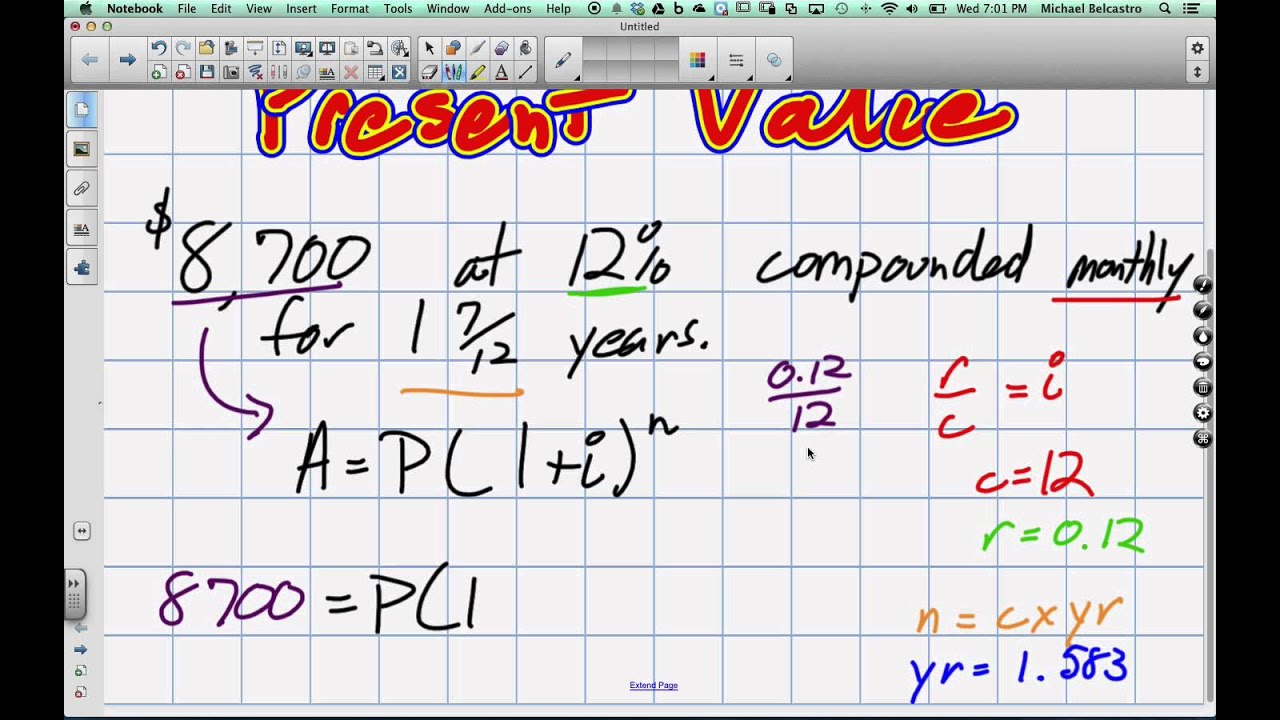 Notebook File Edit View Insert Format Tools Window Add-ons Help Wed 7:01 PM Michael Belcastro
Untitled
Present Value
$8,700 at 12% compounded monthly
for 1 7/12 years.
0.12/12 r/c = i
A = P(1+i)^n
c=12
r=0.12
8700 = P(1
n = c x yr
yr = 1.583
Extend Page